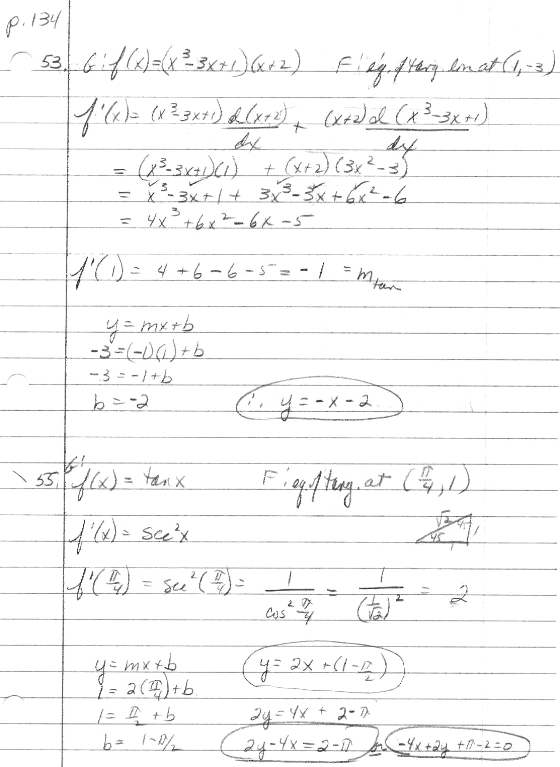 p. 134
53. G: f(x)=(x³-3x+1)(x+2) F: eq. of tang. line at (1,-3)
f'(x)= (x³-3x+1) d(x+2)/dx + (x+2) d(x³-3x+1)/dx
= (x³-3x+1)(1) + (x+2)(3x²-3)
= x³-3x+1 + 3x³-3x+6x²-6
= 4x³+6x²-6x-5
f'(1) = 4+6-6-5 = -1 = m tan
y=mx+b
-3=(-1)(1)+b
-3=-1+b
b=-2 ∴ y=-x-2
55. G: f(x)=tanx F: eq. of tang. at (π/4, 1)
f'(x)= sec²x √2 45 1 1
f'(π/4) = sec²(π/4) = 1/cos² π/4 = 1/(1/√2)² = 2
y=mx+b y=2x+(1-π/2)
1=2(π/4)+b
1= π/2 + b 2y=4x+2-π
b= 1-π/2 2y-4x=2-π or -4x+2y+π-2=0